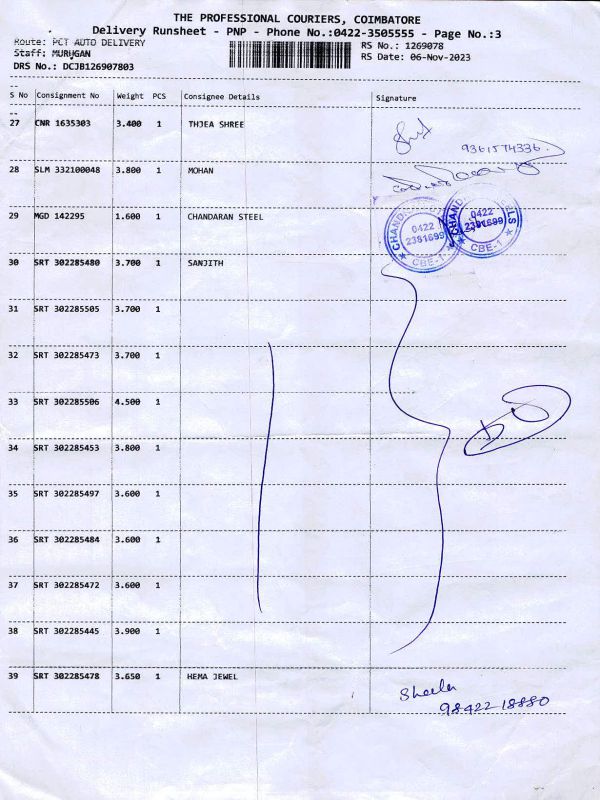 THE PROFESSIONAL COURIERS, COIMBATORE
Delivery Runsheet - PNP - Phone No.:0422-3505555 - Page No.:3
Route: PCT AUTO DELIVERY
RS No.: 1269078
Staff: MURUGAN
RS Date: 06-Nov-2023
DRS No.: DCJB126907803
S No Consignment No Weight PCS Consignee Details Signature
27 CNR 1635303 3.400 1 THJEA SHREE
9361574336.
28 SLM 332100048 3.800 1 MOHAN
29 MGD 142295 1.600 1 CHANDARAN STEEL
0422
2391699
CBE-1
0422
2391699
CBE-1
30 SRT 302285480 3.700 1 SANJITH
31 SRT 302285505 3.700 1
32 SRT 302285473 3.700 1
33 SRT 302285506 4.500 1
34 SRT 302285453 3.800 1
35 SRT 302285497 3.600 1
36 SRT 302285484 3.600 1
37 SRT 302285472 3.600 1
38 SRT 302285445 3.900 1
39 SRT 302285478 3.650 1 HEMA JEWEL
Sheela
98422 18880